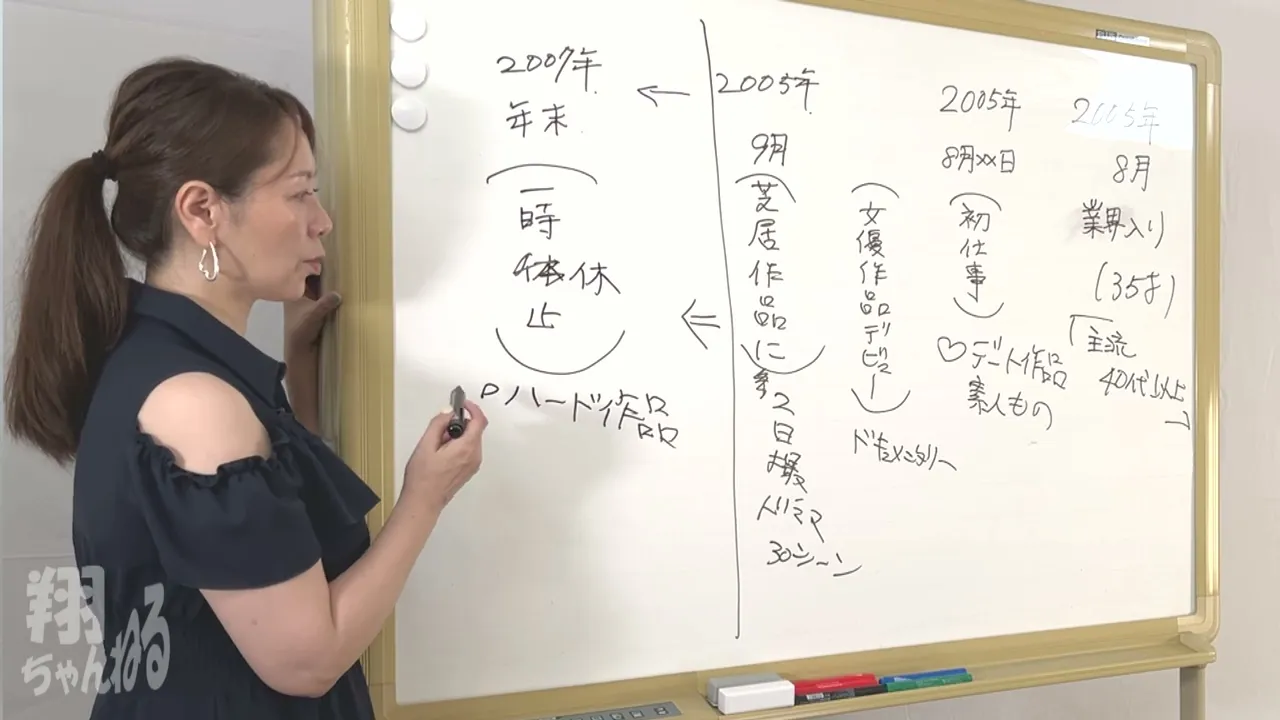 2005年
8月
業界入り
(35才)
「主流
40代以上
」
2005年
8月××日
(初仕事)
♡デート作品
素人もの
(女優作品デビュー)
ドキュメンタリー
2005年
9月
(芝居作品に)
2日撮
ドラマ
30シーン
←
⇐
2007年
年末
(一時休止)
ハード作品
翔
ちゃんねる